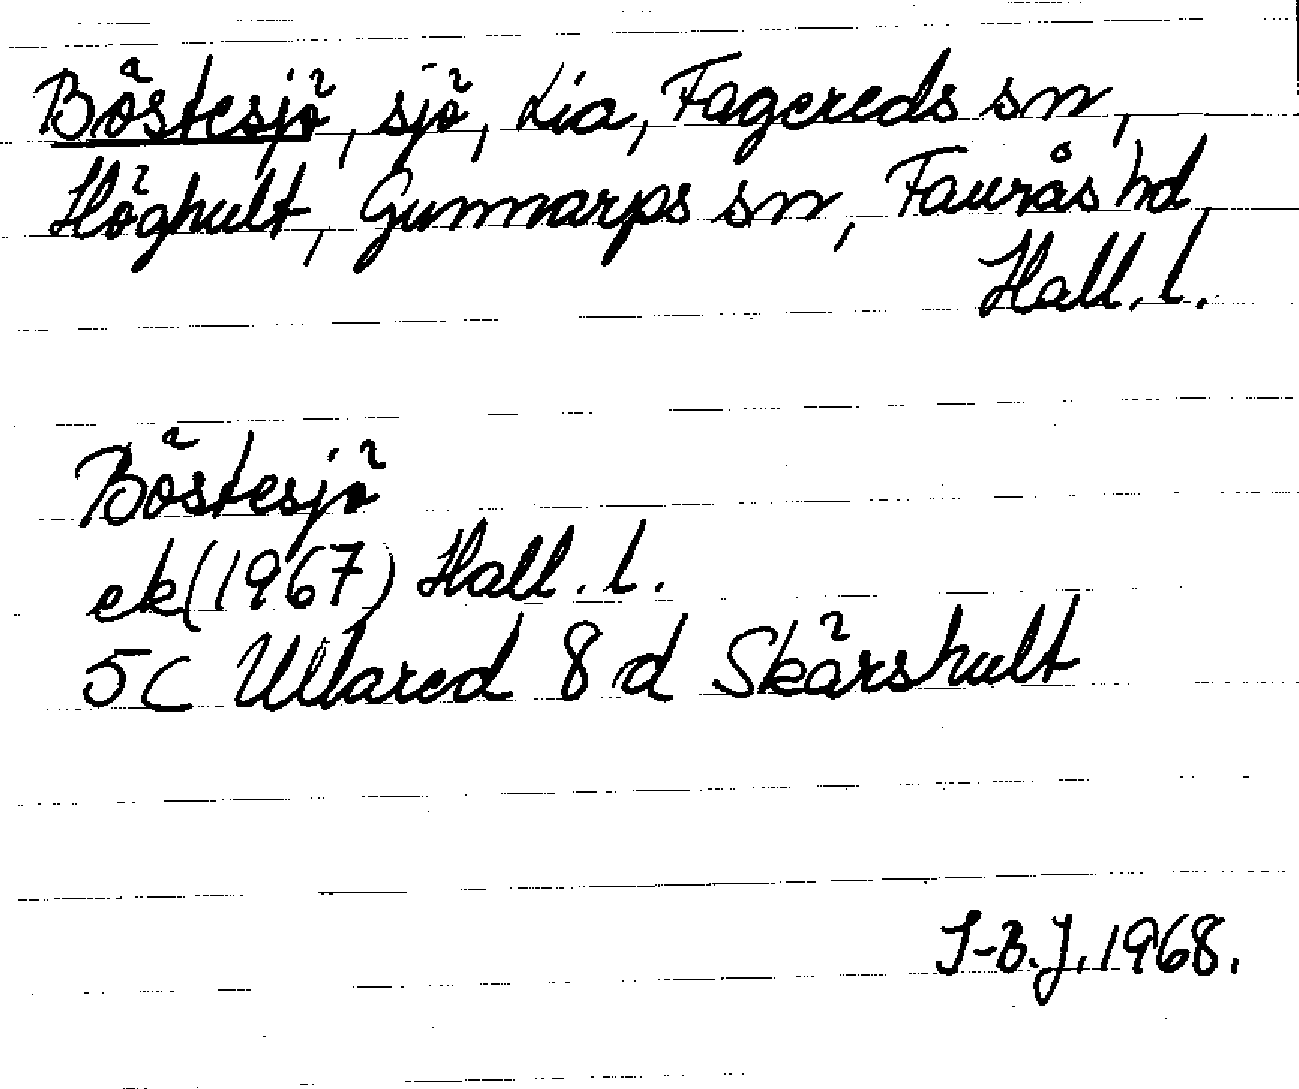 Böstesjö, sjö, Lia, Fagereds sn,
Höghult, Gunnarps sn, Faurås hd,
Hall. l.
Böstesjö
ek (1967) Hall. l.
5C Ullared 8 d Skärshult
I-B.J. 1968.